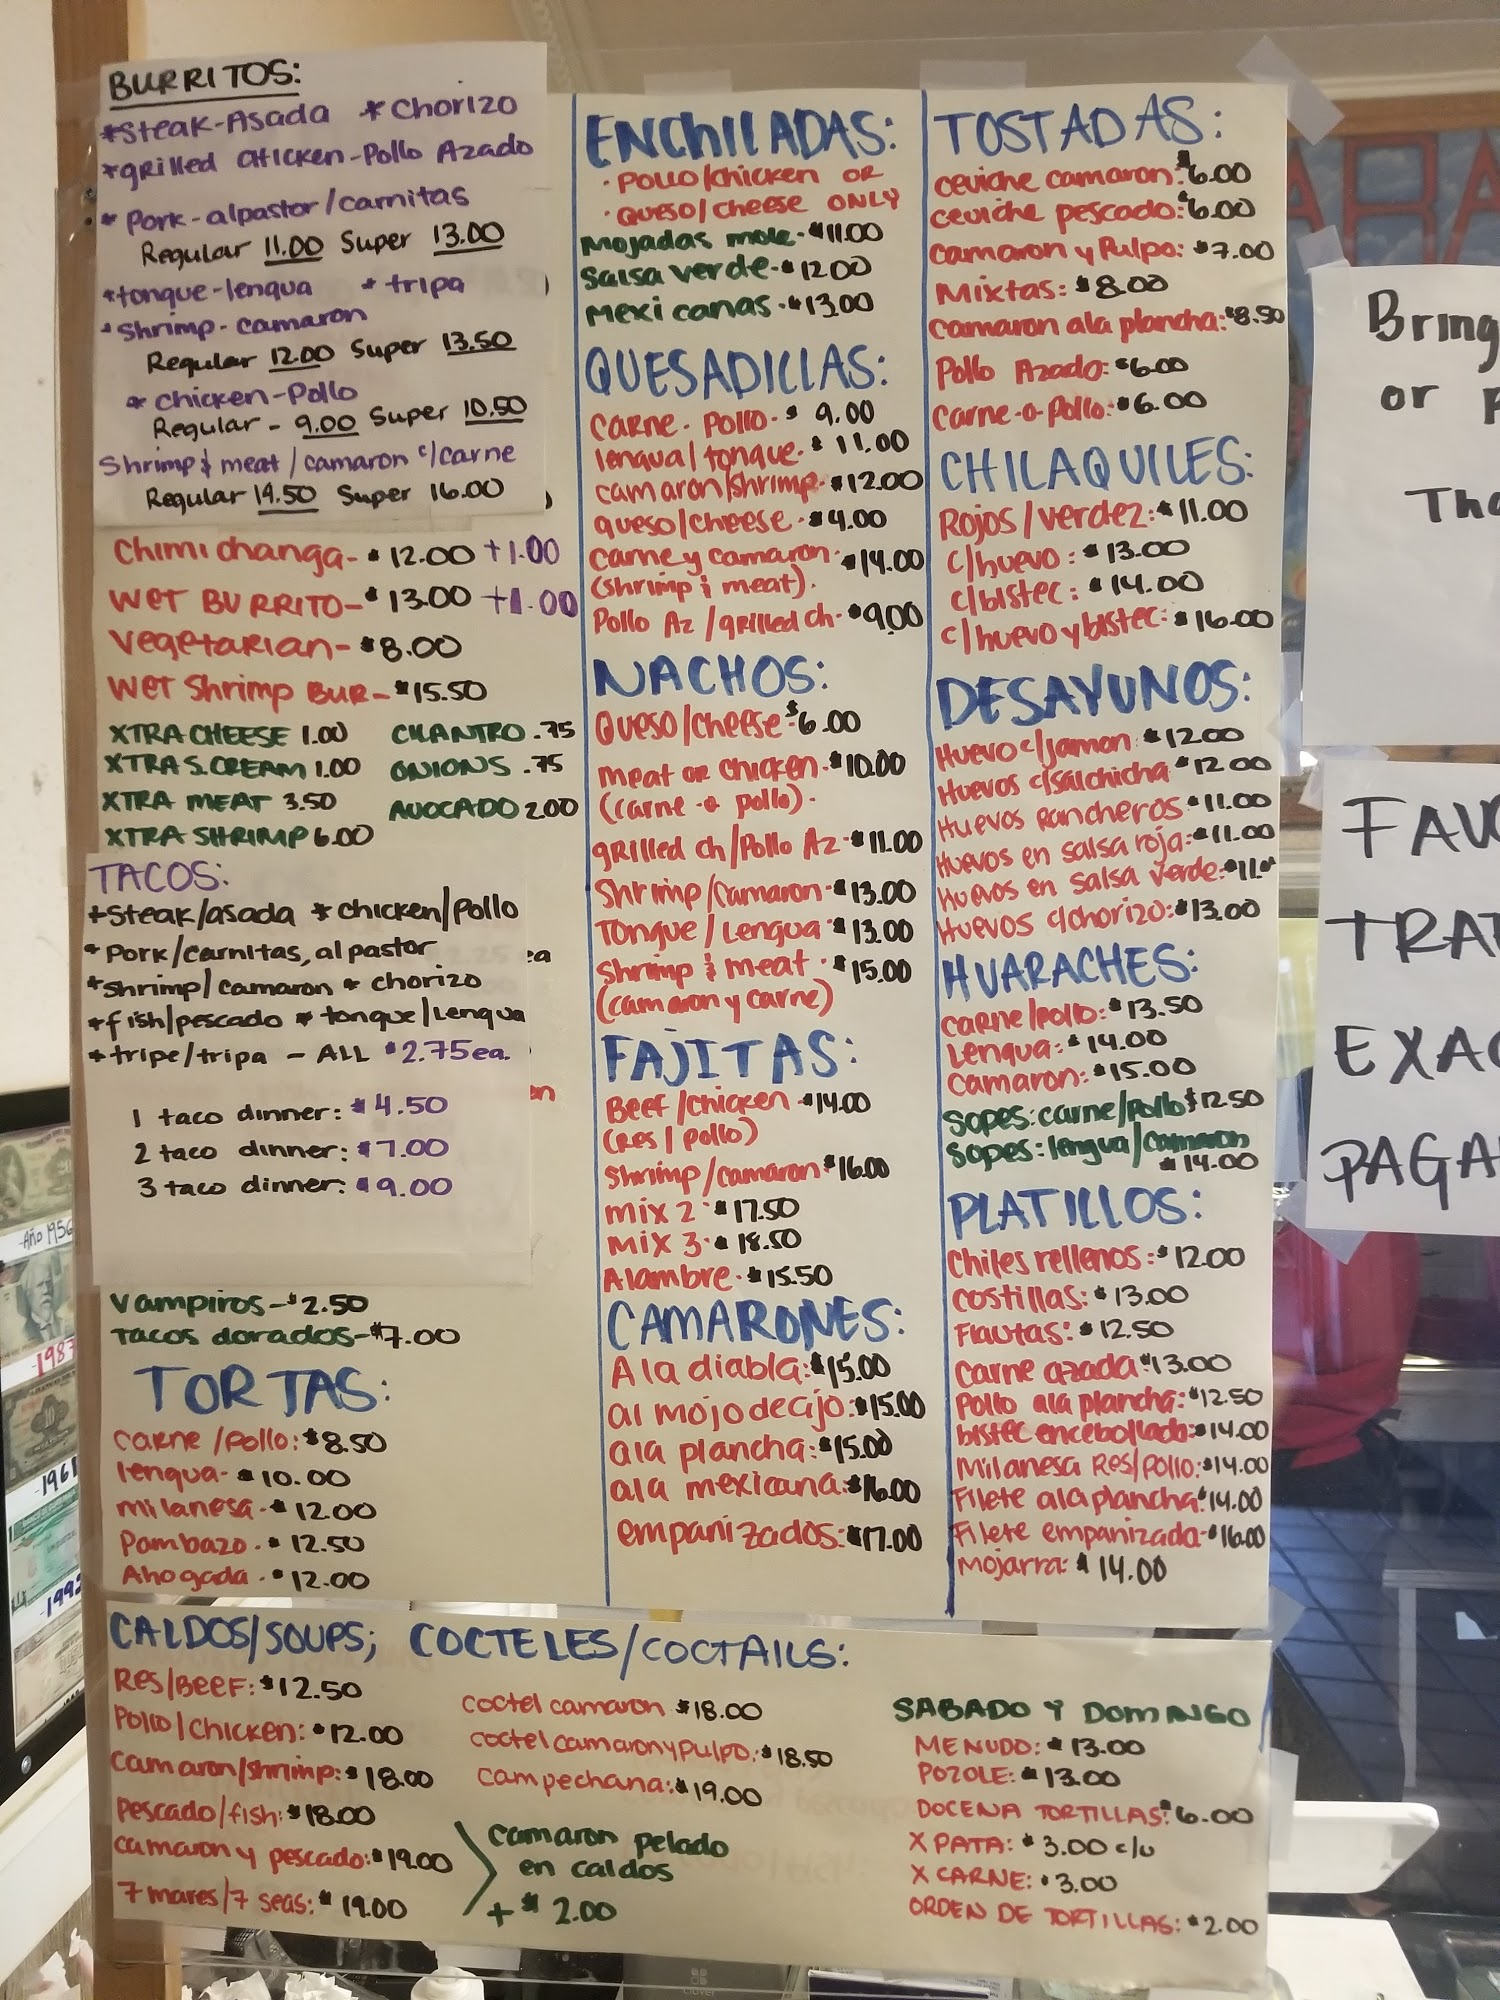 BURRITOS:
*Steak-Asada *Chorizo
*grilled chicken-Pollo Azado
* Pork-alpastor/carnitas
Regular 11.00 Super 13.00
*tongue-lengua * tripa
*Shrimp-camaron
Regular 12.00 Super 13.50
* chicken-Pollo
Regular - 9.00 Super 10.50
Shrimp & meat / camaron c/carne
Regular 14.50 Super 16.00
Chimichanga-$12.00 +1.00
WET BURRITO-$13.00 +1.00
Vegetarian-$8.00
WET Shrimp BUR-$15.50
XTRA CHEESE 1.00 CILANTRO .75
XTRA S.CREAM 1.00 ONIONS .75
XTRA MEAT 3.50 AVOCADO 2.00
XTRA SHRIMP 6.00
TACOS:
*Steak/asada * chicken/pollo
* Pork/carnitas, al pastor
ea
*Shrimp/camaron * chorizo
*fish/pescado * tongue/Lengua
*tripe/tripa - ALL $2.75ea.
en
1 taco dinner: $4.50
2 taco dinner: $7.00
3 taco dinner: $9.00
Vampiros-$2.50
Tacos dorados-$7.00
TORTAS:
Carne/pollo: $8.50
lengua-$10.00
milanesa-$12.00
Pambazo.$12.50
Ahogada.$12.00
ENCHILADAS:
. POLLO/chicken OR
. QUESO/cheese ONLY
Mojadas mole-$11.00
Salsa verde-$12.00
Mexicanas-$13.00
QUESADILLAS:
Carne-Pollo-$9.00
lengua/tongue.$11.00
camaron/shrimp-$12.00
queso/cheese-$4.00
carne y camaron-$14.00
(shrimp & meat).
Pollo Az/grilled ch-$9.00
NACHOS:
Queso/cheese-$6.00
meat or chicken-$10.00
(carne-o pollo).
grilled ch/Pollo Az-$11.00
Shrimp/Camaron-$13.00
Tongue/Lengua-$13.00
Shrimp & meat-$15.00
(camaron y carne)
FAJITAS:
Beef/chicken-$14.00
(Res/pollo)
Shrimp/camaron $16.00
mix 2-$17.50
Mix 3-$18.50
Alambre-$15.50
CAMARONES:
A la diabla: $15.00
al mojo de ajo: $15.00
ala plancha: $15.00
ala mexicana: $16.00
empanizados: $17.00
TOSTADAS:
ceviche camaron: $6.00
ceviche pescado: $6.00
camaron y Pulpo: $7.00
Mixtas: $8.00
camaron ala plancha: $8.50
Pollo Azado: $6.00
Carne-o-Pollo: $6.00
CHILAQUILES:
Rojos/verdez: $11.00
c/huevo: $13.00
c/bistec: $14.00
c/huevo y bistec: $16.00
DESAYUNOS:
Huevo c/jamon: $12.00
Huevos c/salchicha $12.00
Huevos Rancheros $11.00
Huevos en salsa roja: $11.00
Huevos en salsa verde: $11.00
Huevos c/chorizo: $13.00
HUARACHES:
Carne/pollo: $13.50
Lengua: $14.00
camaron: $15.00
Sopes: carne/pollo $12.50
Sopes: lengua/camaron
$14.00
PLATILLOS:
Chiles rellenos: $12.00
costillas: $13.00
Flautas: $12.50
Carne azada $13.00
Pollo ala plancha: $12.50
bistec encebollado: $14.00
Milanesa Res/pollo: $14.00
Filete ala plancha $14.00
Filete empanizada-$16.00
Mojarra: $14.00
CALDOS/SOUPS; COCTELES/COCTAILS:
RES/BEEF: $12.50
Pollo/Chicken: $12.00
Camaron/shrimp: $18.00
Pescado/fish: $18.00
camaron y pescado: $19.00
7 mares/7 seas: $19.00
coctel camaron $18.00
coctel camaron y pulpo: $18.50
campechana: $19.00
camaron pelado
en caldos
+ $2.00
SABADO Y DOMINGO
MENUDO: $13.00
POZOLE: $13.00
DOCENA TORTILLAS: $6.00
X PATA: $3.00 c/u
X CARNE: $3.00
ORDEN DE TORTILLAS: $2.00
Bring
or
Tha
FAVO
TRA
EXAC
PAGA
-AÑO 1956
-1987
-1961
-1992